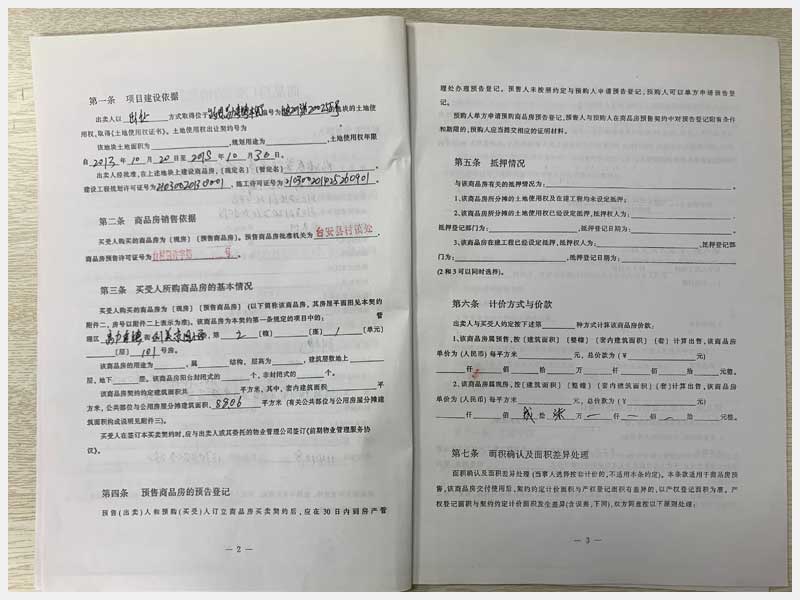 第一条 项目建设依据
出卖人以 出让 方式取得位于 编号为 的地块的土地使
用权,取得《土地使用权证书》。土地使用权出让契约号为
该地块土地面积为 ,规划用途为 ,土地使用权年限
自 2013 年 10 月 20 日至 年 10 月 30 日。
出卖人经批准,在上述地块上建设商品房,〔现定名〕〔暂定名〕
建设工程规划许可证号为 ,施工许可证号为 。
第二条 商品房销售依据
买受人购买的商品房为〔现房〕〔预售商品房〕。预售商品房批准机关为 台安县村镇处 ,
商品房预售许可证号为 号 。
第三条 买受人所购商品房的基本情况
买受人购买的商品房为〔现房〕〔预售商品房〕(以下简称该商品房,其房屋平面图见本契约
附件二,房号以附件二上表示为准)。该商品房为本契约第一条规定的项目中的: 管
理区 街 第 2 〔幢〕 〔座〕 1 〔单元〕
〔层〕 101 号房。
该商品房的用途为 ,属 结构,层高为 ,建筑层数地上
层,地下 层。该商品房阳台封闭式的 个,非封闭式的 个。
该商品房契约约定建筑共 平方米,其中,套内建筑面积 平
方米,公共部位与公用房屋分摊建筑面积, 平方米(有关公共部位与公用房屋分摊建
筑面积构成说明见附件三)。
买受人在签订本买卖契约时,应与出卖人或其委托的物业管理公司签订《前期物业管理服务协
议》。
第四条 预售商品房的预告登记
预售(出卖)人和预购(买受)人订立商品房买卖契约后,应在30日内到房产管
— 2 —
理处办理预告登记。预售人未按照约定与预购人申请预告登记,预购人可以单方申请预告登
记。
预购人单方申请预购商品房预告登记,预售人与预购人在商品房预售契约中对预告登记附有条件
和期限的,预购人应当提交相应的证明材料。
第五条 抵押情况
与该商品房有关的抵押情况为: 。
1、该商品房所分摊的土地使用权及在建工程均未设定抵押;
2、该商品房所分摊的土地使用权已经设定抵押,抵押权人为: ,
抵押登记部门为: ,抵押登记日期为: 。
3、该商品房在建工程已经设定抵押,抵押权人为: ,抵押登记
部门为: ,抵押登记日期为: 。
(2和3可以同时选择)。
第六条 计价方式与价款
出卖人与买受人约定按下述第 种方式计算该商品房价款:
1、该商品房属预售,按〔建筑面积〕〔整幢〕〔套内建筑面积〕〔套〕计算出售,该商品房
单价为(人民币)每平方米 元,总价款为(¥ 元)
仟 佰 拾 万 仟 佰 拾 元整。
2、该商品房属现房,按〔建筑面积〕〔整幢〕〔套内建筑面积〕〔套〕计算出售,该商品房
单价为(人民币)每平方米 元,总价款为(¥ 元)
仟 佰 拾 柒 万 仟 佰 拾 元整。
第七条 面积确认及面积差异处理
面积确认及面积差异处理(当事人选择按套计价的,不适用本条约定)。本条款适用于商品房预
售,该商品房交付使用后,契约约定计价面积与产权登记面积有差异的,以产权登记面积为准。产
权登记面积与契约约定计价面积发生差异(含误差,下同),双方同意按以下原则处理:
— 3 —